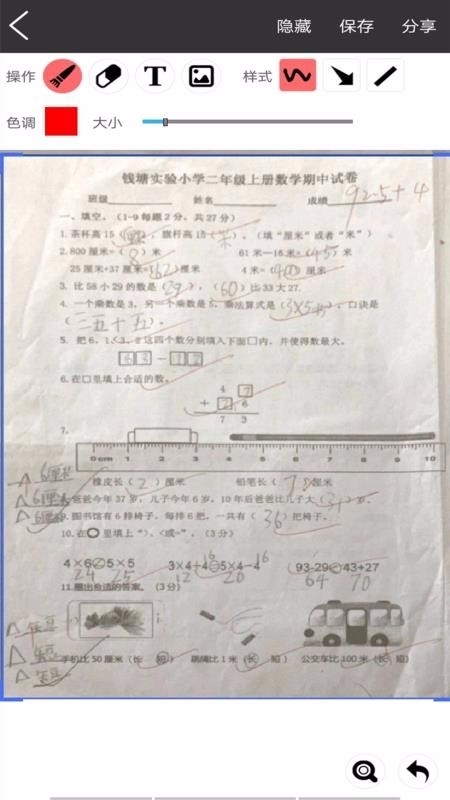 隐藏 保存 分享
操作 T 样式
色调 大小
钱塘实验小学二年级上册数学期中试卷
班级 姓名 成绩 92.5+4
一、填空。（1-9每题2分，共27分）
1.茶杯高15（厘米），旗杆高15（米）。（填“厘米”或者“米”）
2.800厘米=（8）米 61米－16米=（45）米
25厘米+37厘米=（62）厘米 4米=（400）厘米
3.比58小29的数是（29），（60）比33大27.
4.一个乘数是3，另一个乘数是5，乘法算式是（3×5=15），口诀是
（三五十五）.
5.把6、1、3、2这四个数分别填入下面□内，并使得数最大。
6 3 －1 2
6.在□里填上合适的数。
4 7
+ 2 6
7 3
7.
0cm 1 2 3 4 5 6 7 8 9 10
橡皮长（2）厘米 铅笔长（7）厘米
6厘米
爸爸今年37岁，儿子今年6岁，10年后爸爸比儿子大（31）岁。
6厘米
9.图书馆有6排椅子，每排6把，一共有（36）把椅子。
6厘米
10.在○里填上“>、<或=”.（3分）
4×6 5×5 3×4+4 5×4－4 93-29 43+27
24 25 12 16 20 16 64 70
11.圈出合适的答案。（3分）
手机比50厘米（长 短） 跳绳比1米（长 短） 公交车比100米（长 短）